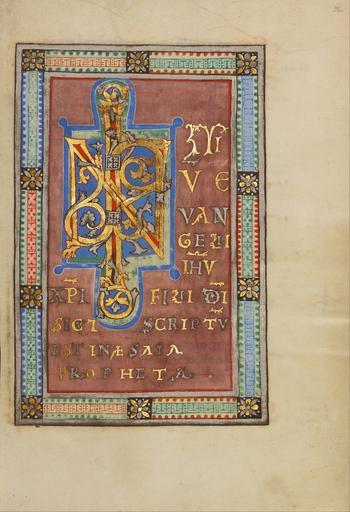 INITI
V E
VAN
GELII
IHV
XPI FILII DI
SICT SCRIPTV
EST IN ESAIA
PROPHETA.